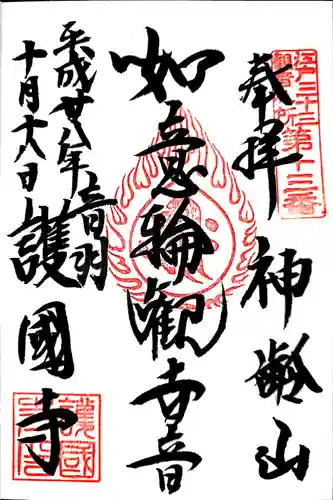 江戸三十三
観音札所第十三番
奉拝 神齢山
如意輪観世音
平成廿八年 音羽 護國寺
十月十八日
護國寺